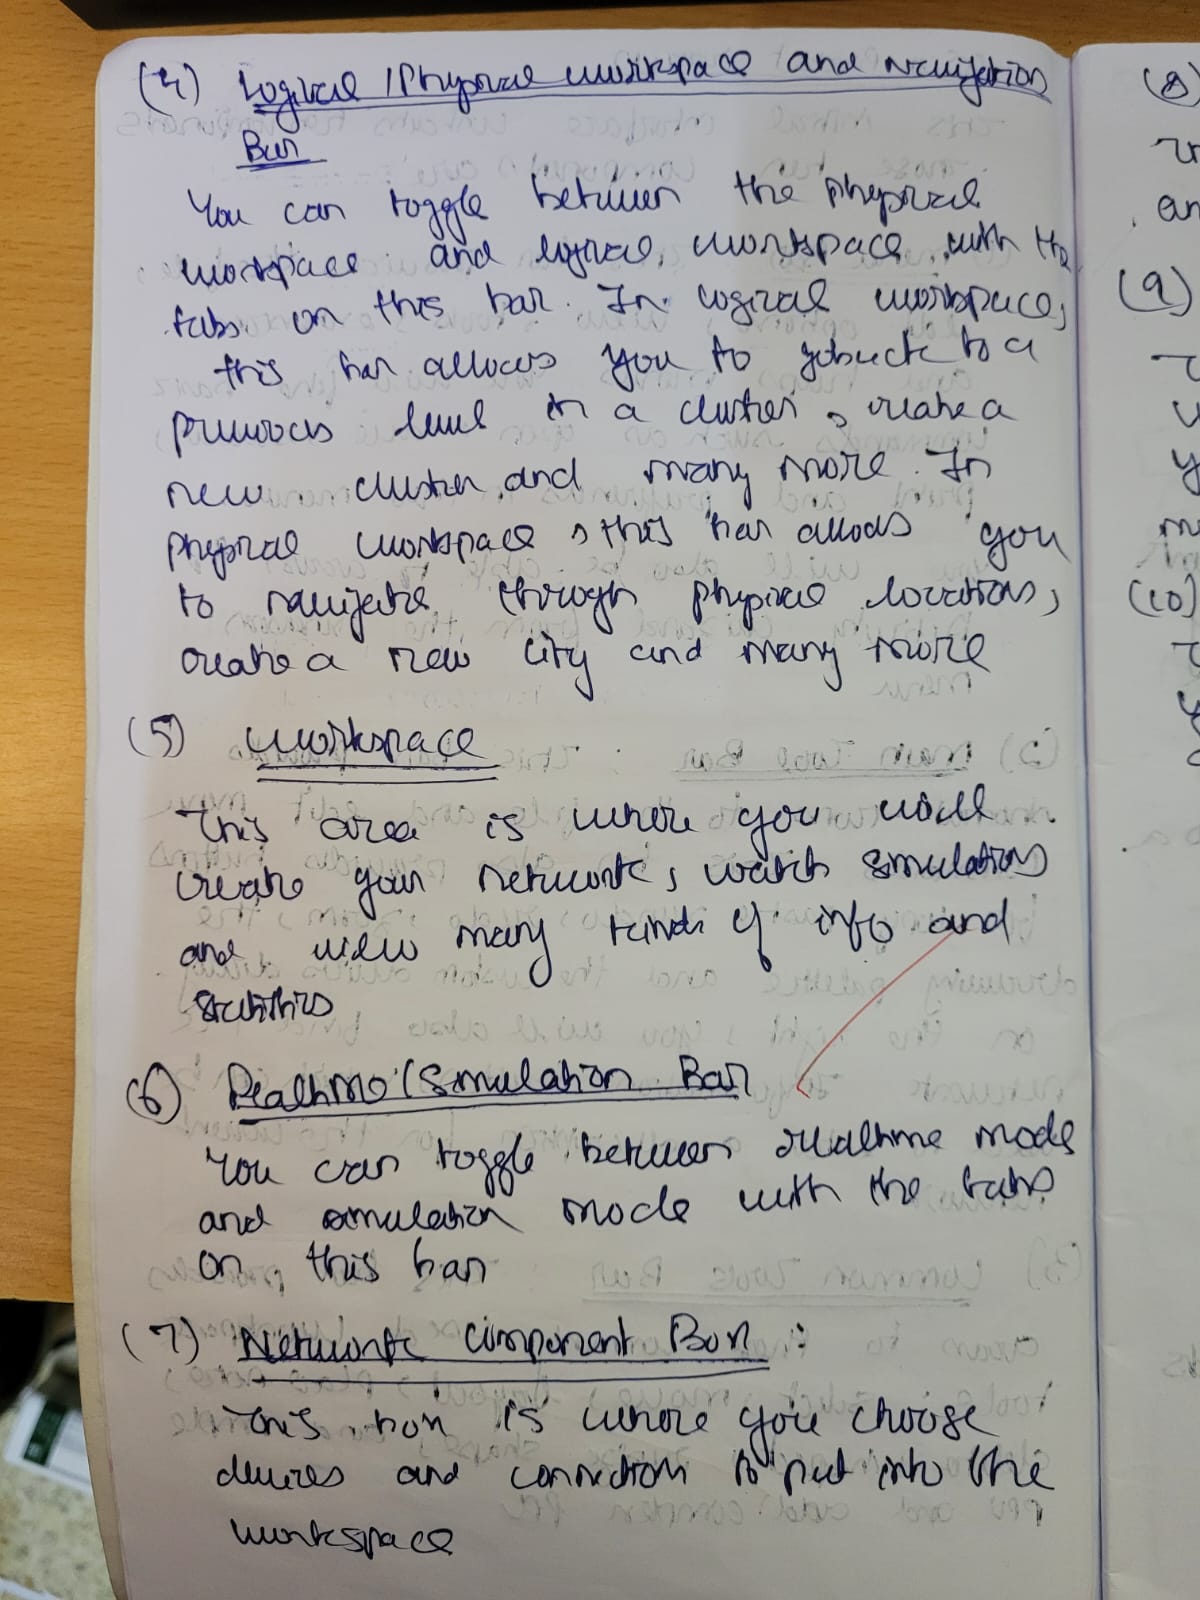 (4) Logical /Physical workspace and navigation
Bar
You can toggle between the physical
workspace and logical workspace with the
tabs on this bar. In logical workspace,
this bar allows you to goback to a
previous level in a cluster, create a
new cluster and many more. In
physical workspace, this bar allows you
to navigate through physical locations,
create a new city and many more
(5) Workspace
This area is where you will
create your network, watch simulations
and view many kinds of info and
statistics
(6) Realtime/Simulation Bar
You can toggle between realtime mode
and simulation mode with the tabs
on this bar
(7) Network Component Box :
This box is where you choose
devices and connections to put into the
workspace
(8)
(9)
(10)